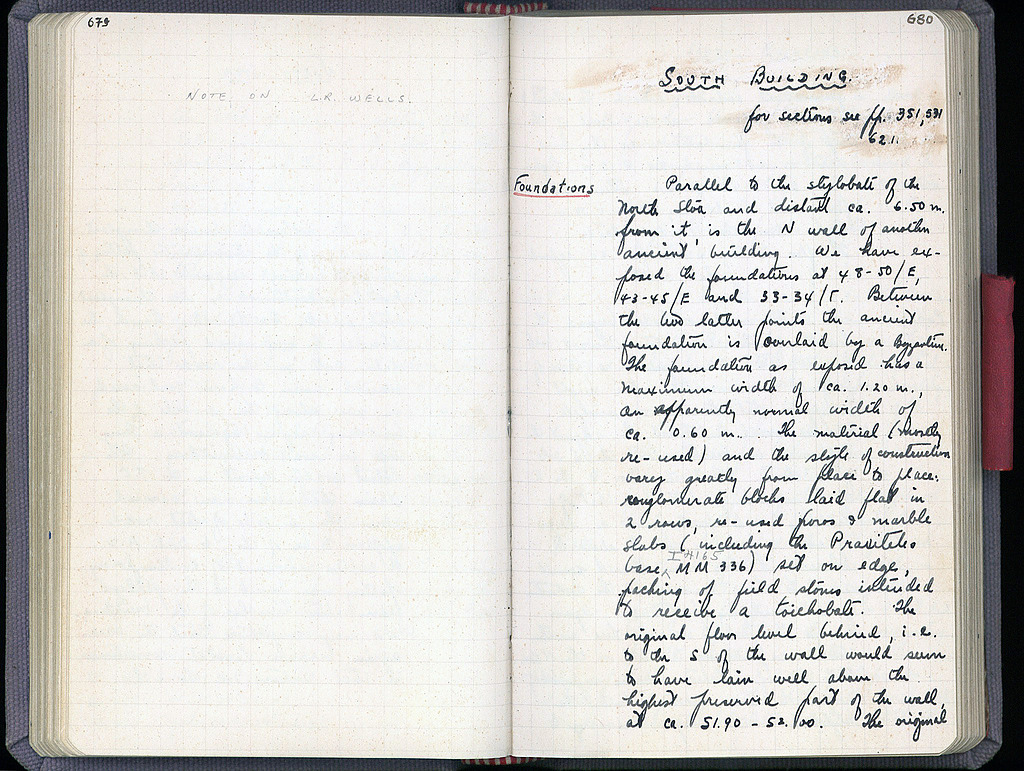 679
NOTE ON L.R. WELLS.
680
SOUTH BUILDING.
for sections see pp. 351, 531
621.
Foundations
Parallel to the stylobate of the
North Stoa and distant ca. 6.50 m.
from it, is the N wall of another
ancient building. We have ex-
posed the foundations at 48-50/E,
43-45/E and 33-34/Γ. Between
the two latter points the ancient
foundation is overlaid by a Byzantine.
The foundation as exposed has a
maximum width of ca. 1.20 m.,
an apparently normal width of
ca. 0.60 m.. The material (mostly
re-used) and the style of construction
vary greatly from place to place:
conglomerate blocks laid flat in
2 rows, re-used poros & marble
slabs (including the Praxiteles
I 4165
base ^ MM 336) set on edge,
packing of field stones intended
to receive a toichobate. The
original floor level behind, i.e.
to the S of the wall would seem
to have lain well above the
highest preserved part of the wall,
at ca. 51.90 - 52.00. The original